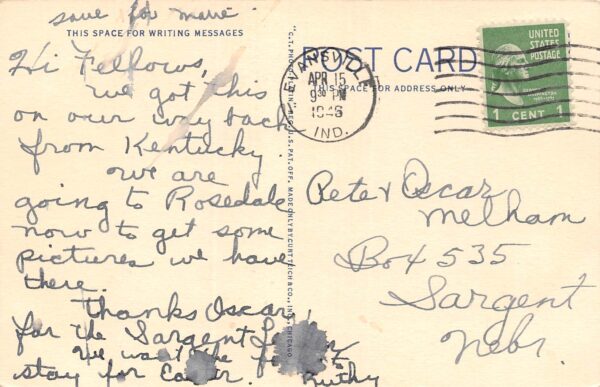 save for marie
THIS SPACE FOR WRITING MESSAGES
Hi Fellows,
We got this
on our way back
from Kentucky.
We are
going to Rosedale
now to get some
pictures we have
there.
Thanks Oscar
for the Sargent
We want the to
stay for Easter. Ruthy
"C.T. PHOTO-PLATIN" REG. U.S. PAT. OFF. MADE ONLY BY CURT TEICH & CO., INC., CHICAGO
POST CARD
THIS SPACE FOR ADDRESS ONLY
EVANSVILLE
APR 15
9 30 PM
1946
IND.
UNITED
STATES
POSTAGE
WASHINGTON
1 CENT 1
Pete & Oscar
Melham
Box 535
Sargent
Nebr.